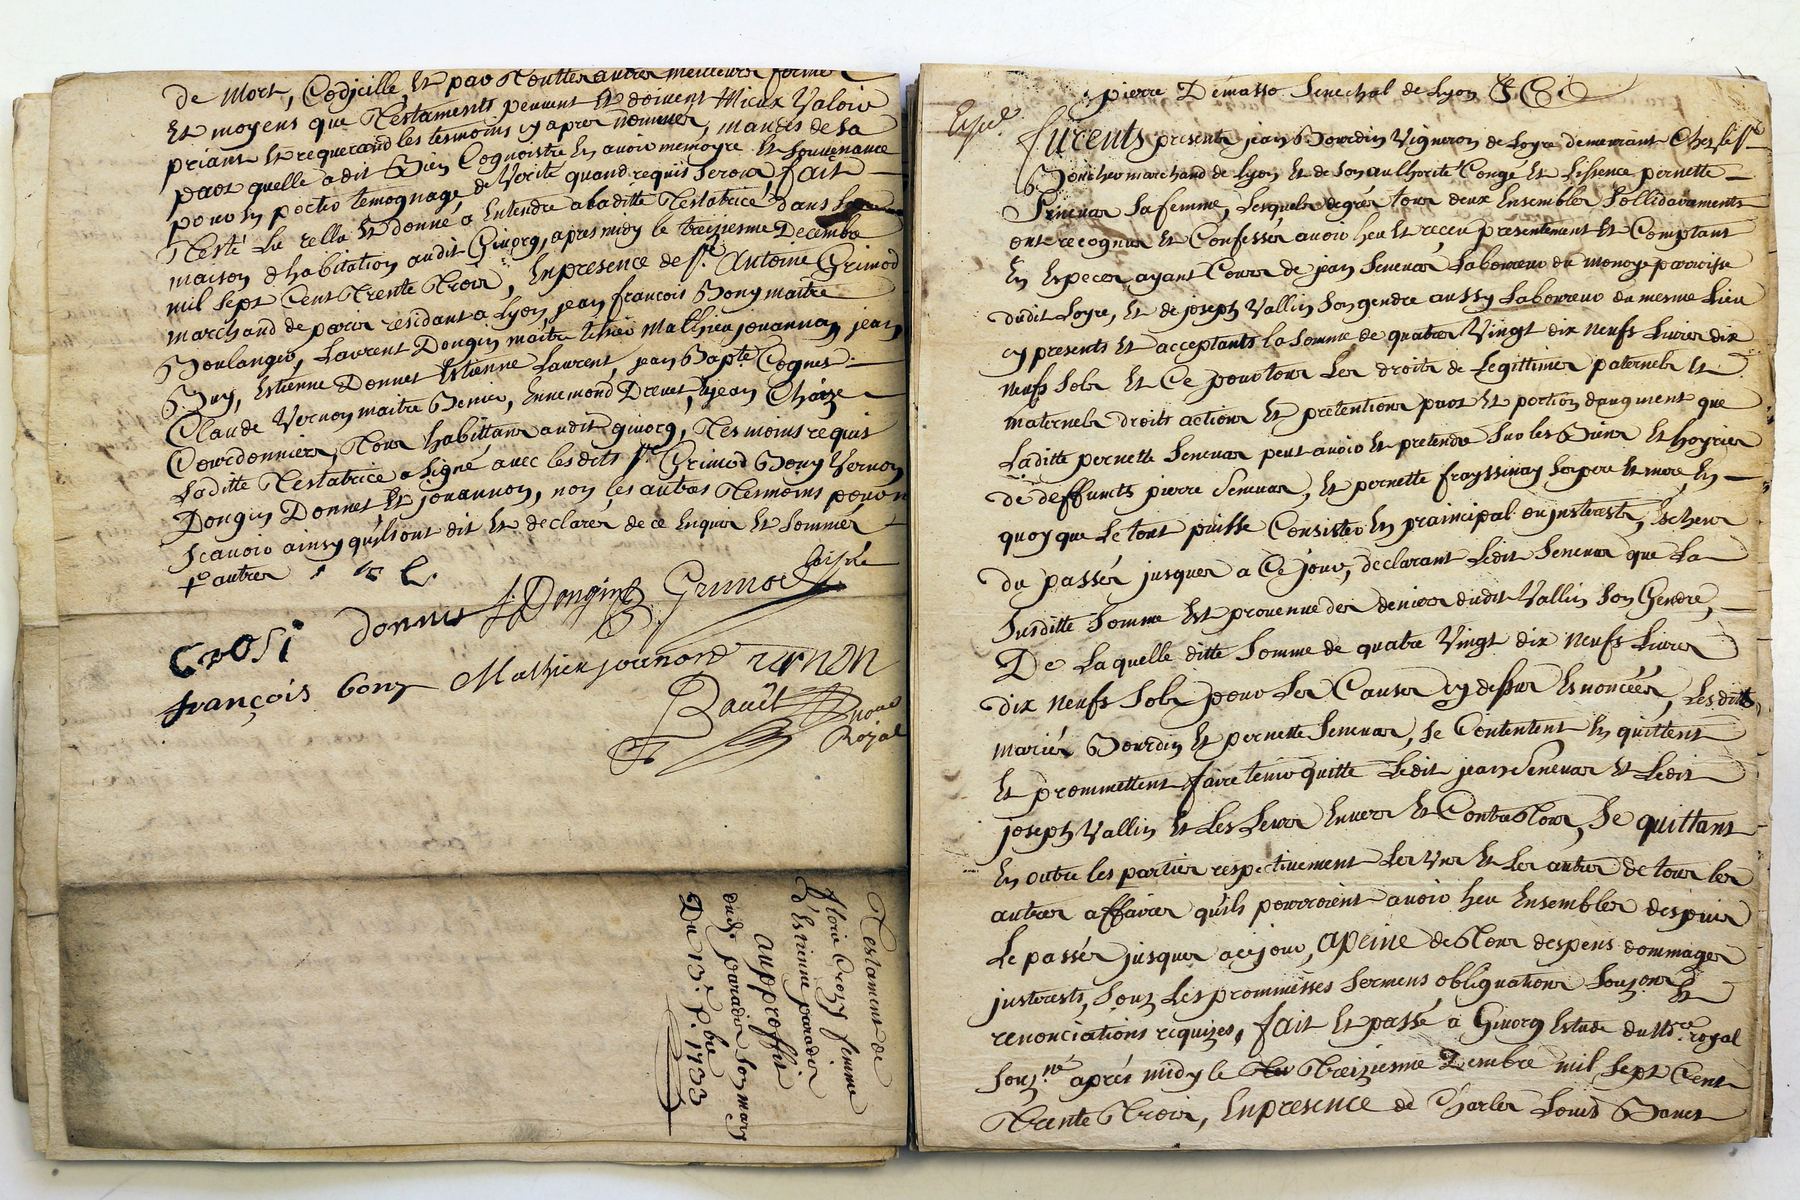 de Mort, Codjcille, Et par Touttes autres meilleures formes
Et moyens que Testaments peuvent Et doivent Mieux Valoir
priant Et requerand les tesmoins cy apres nommer, mandés de sa
part quelle a dit Bien Cognoistre En avoir memoyre Et souvenance
pour En porter temognage, de Verité quand requis seront, fait
Testé Lu rellu Et donné a Entendre a laditte Testatrice dans sa
maison d'habitation audit Givorg, apres midy le treiziesme Decembre
mil sept Cent Trente Trois, En presence de Sr. Antoine Grimod
marchand de paris residant a Lyon, jean françois Bony maitre
Boulanger, Laurent Dongin maitre Mathieu jouannon, jean
Buy, Estienne Donnet Estienne Laurent, jean Bapte Cognet
Claude Vernon maitre Ennemond Drevet, Et jean Chaize
Courdonnier, Tous habittans audit givorg, Tesmoins requis
Laditte Testatrice a signé avec lesdits Sr. Grimod Bony Vernon
Dongin Donnet Et jouannon, non les autres Tesmoins pour n
scavoir ainsy qu'ils ont dit Et declarer de ce Enquis Et sommés
autres
Crosi donnet L Dongin Grimod
françois bony Mathieu jouanond vernon
Bauët
Royal
Testament de
florie Crozy femme
d'Estienne paradis
au proffit
dudt. paradis son mary
Du 13e. Xbre 1733
pierre Demasso Senechal de Lyon
Expé.
furents presents jean Bourdin Vigneron de Loyre demeurant Chez le Sr.
Boucher marchand de Lyon Et de son authorité Congé Et Lissence pernette
Senevas sa femme, Lesquels de gré tous deux Ensembles Sollidairements
ont recognus Et Confessés avoir heu Et receu presentement Et Comptant
En Especes ayant Cours de jean Senevas Laboureur du monoye parroisse
dudit Loyre, Et de joseph Vallin son gendre aussy Laboureur du mesme Lieu
cy presents Et acceptants la somme de quatres Vingt dix neufs Livres dix
neufs sols Et Ce pour tous Les droits de Legittimes paternels Et
maternels droits actions Et pretentions part Et portion d'augment que
Laditte pernette Senevas peut avoir Et pretendre Sur les Biens Et hoyries
de deffuncts pierre Senevas, Et pernette frayssinay ses pere Et mere, En
quoy que Le tout puisse Consister En praincipal ou jnterests, Escheus
du passés jusques a Ce jour, declarant Ledit Senevas que La
susditte somme Est provenue des deniers dudit Vallin son Gendre,
De Laquelle ditte somme de quatre Vingt dix neufs Livres
dix neufs sols pour Les Causes cy dessus Esnoncées, Lesdits
mariés Bourdin Et pernette Senevas, se Contentent En quittent
Et prommettent faire tenir quitte Ledit jean Senevas Et Ledit
joseph Vallin Et Les Leurs Envers Et Contre Tous, Se quittant
En outre les parties respectivement Les Uns Et Les autres de tous les
autres affaires qu'ils pourroient avoir heu Ensembles despuis
Le passés jusques a ce jour, apeine de Tous despens dommages
jnterests, sous Les prommesses sermens obligations sousons Et
renonciations requizes, fait Et passé à Givorg Estude du Nre. royal
souz.né aprés midy le Treiziesme Dembre mil sept Cent
Trente Trois, En presence de Charles Louis Bauet